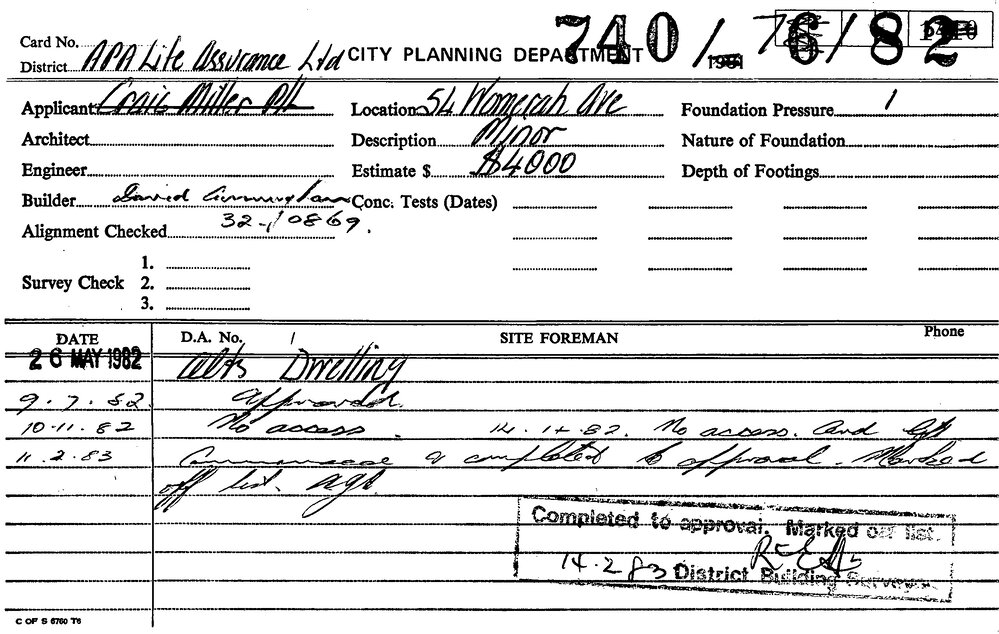 740/76/82
Card No.
District APA Life Assurance Ltd CITY PLANNING DEPARTMENT 1981
Applicant Craig Miller P/L Location 54 Womerah Ave Foundation Pressure
Architect Description Minor Nature of Foundation
Engineer Estimate $ $4000 Depth of Footings
Builder David Cunningham Conc. Tests (Dates)
Alignment Checked 32-10869.
Survey Check 1.
2.
3.
DATE D.A. No. SITE FOREMAN Phone
26 MAY 1982 Alts Dwelling
9.7.82. Approved.
10.11.82 No access. 14.1+.82. No access. Card left
11.2.83 & completed to approval. Marked
off list.
Completed to approval. Marked off list.
14.2.83 District Building Surveyor
C OF S 6760 T6